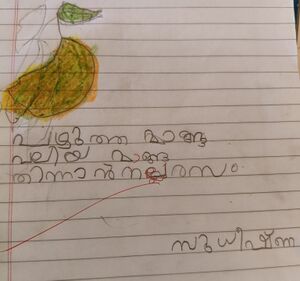 പഴുത്ത മാങ്ങ
വലിയ മാങ്ങ
തിന്നാൻ നല്ല രസം
സുധീഷ്ണ